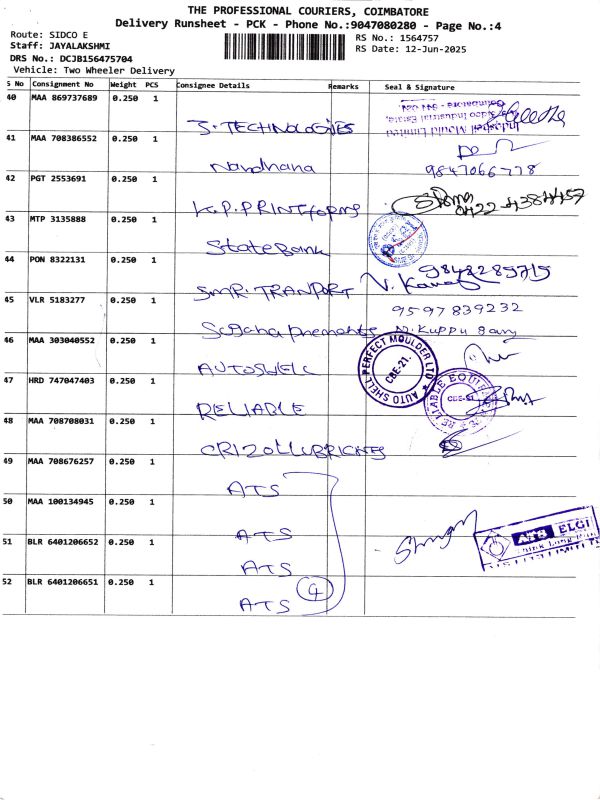 THE PROFESSIONAL COURIERS, COIMBATORE
Delivery Runsheet - PCK - Phone No.:9047080280 - Page No.:4
Route: SIDCO E
Staff: JAYALAKSHMI
DRS No.: DCJB156475704
Vehicle: Two Wheeler Delivery
RS No.: 1564757
RS Date: 12-Jun-2025
S No Consignment No Weight PCS Consignee Details Remarks Seal & Signature
40 MAA 869737689 0.250 1
J. TECHNOLOGIES
Industrial Estate,
Coimbatore - 641 021.
41 MAA 708386552 0.250 1
Nandhana
9847066778
42 PGT 2553691 0.250 1
K.P. PRINTforms
0422-4384457
43 MTP 3135888 0.250 1
State Bank
44 PON 8322131 0.250 1
SMR. TRANPORT
9848285715
45 VLR 5183277 0.250 1
9597839232
N. Kuppu Samy
46 MAA 303040552 0.250 1
AUTOSHELL
AUTO SHELL PERFECT MOULDER LTD
CBE-21.
47 HRD 747047403 0.250 1
RELIABLE
RELIABLE
CBE-21
48 MAA 708708031 0.250 1
49 MAA 708676257 0.250 1
ATS
50 MAA 100134945 0.250 1
ATS
51 BLR 6401206652 0.250 1
ATS
ELGI
52 BLR 6401206651 0.250 1
ATS
4